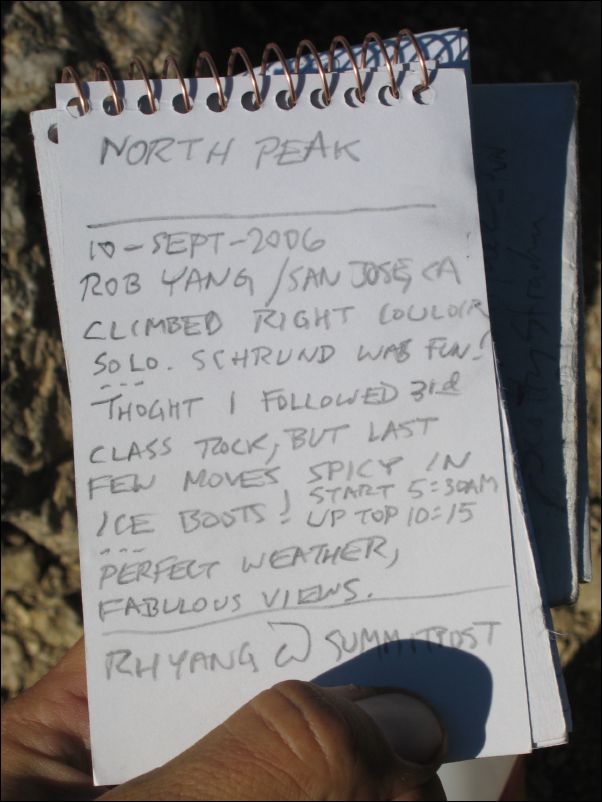 NORTH PEAK
10-SEPT-2006
ROB YANG / SAN JOSE, CA
CLIMBED RIGHT COULOIR
SOLO. SCHRUND WAS FUN!
---
THOGHT I FOLLOWED 3rd
CLASS ROCK, BUT LAST
FEW MOVES SPICY IN
ICE BOOTS! START 5:30AM
UP TOP 10:15
---
PERFECT WEATHER,
FABULOUS VIEWS.
RHYANG @ SUMMITPOST